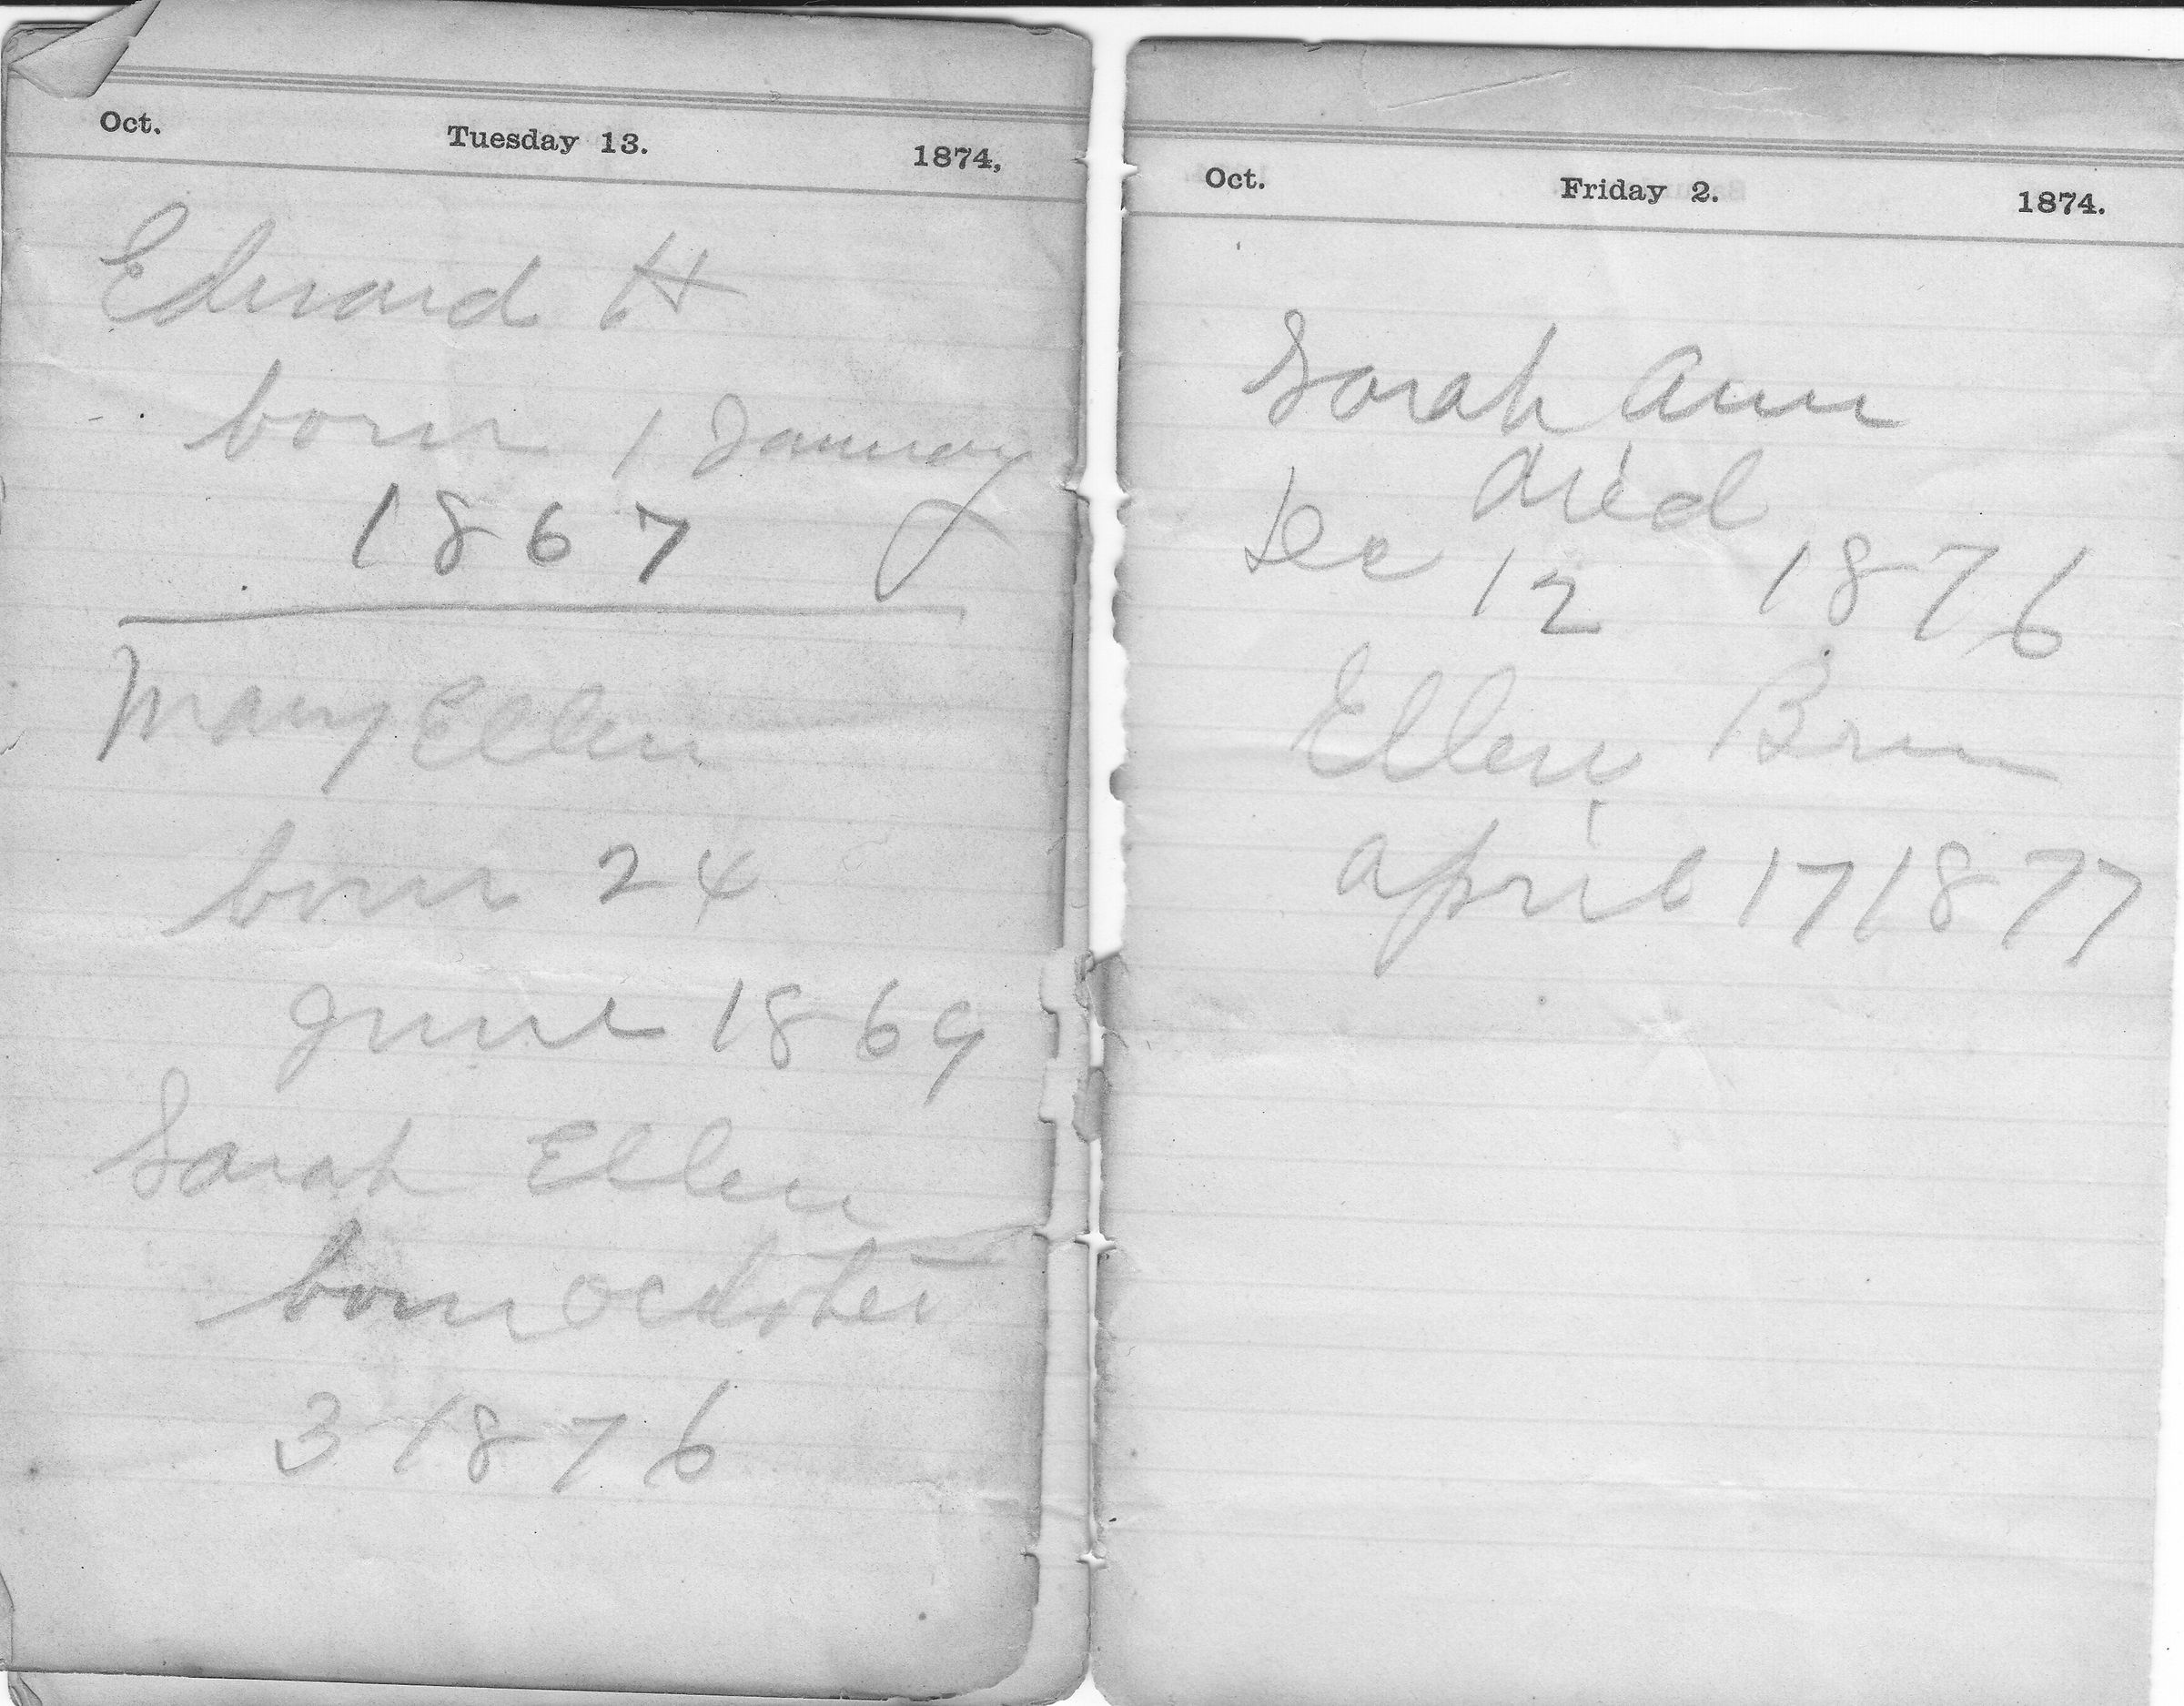 Oct. Tuesday 13. 1874,
Edward H
born 1 January
1867
Mary Ellen
born 24
June 1869
Sarah Ellen
born October
3 1876
Oct. Friday 2. 1874.
Sarah Ann
died
Dec 12 1876
Ellen
April 17 1877